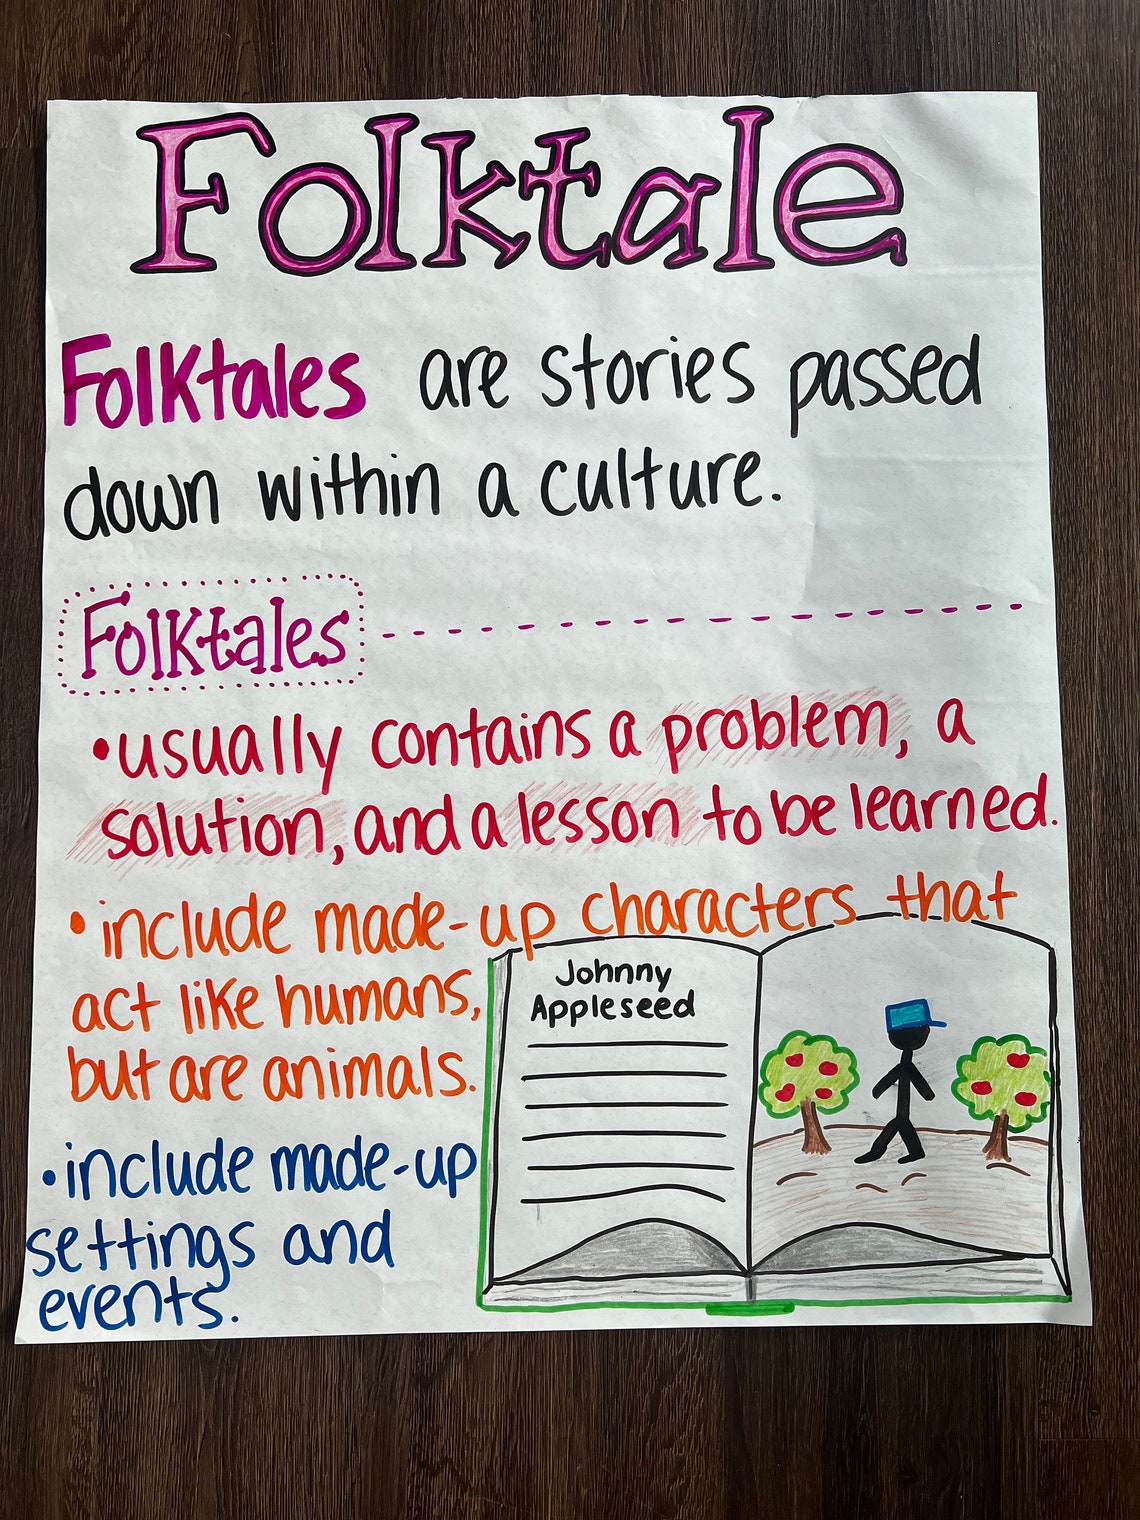 Folktale
Folktales are stories passed
down within a culture.
Folktales
•usually contains a problem, a
solution, and a lesson to be learned.
•include made-up characters that
act like humans,
but are animals.
•include made-up
settings and
events.
Johnny
Appleseed